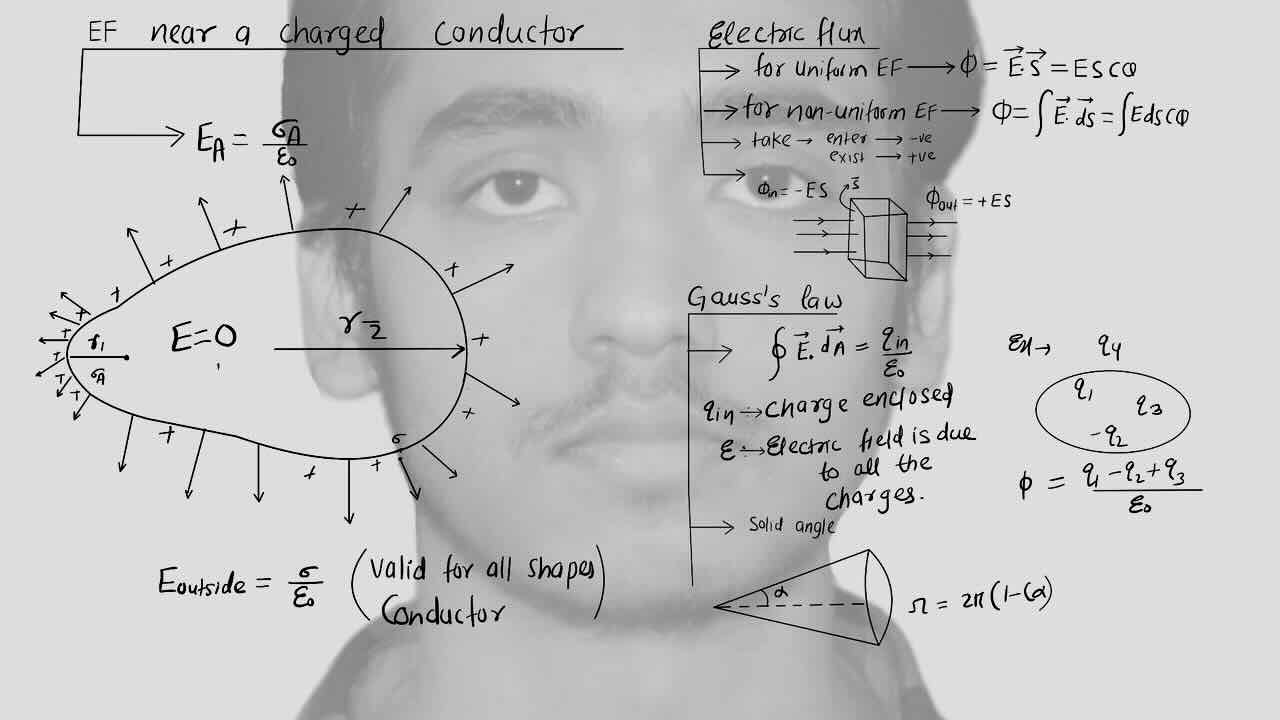 EF near a charged Conductor
E_A = σ_A/ε₀
E=0
r₁
σ_A
r₂
σ
E_outside = σ/ε₀ (Valid for all shapes Conductor)
Electric flux
for uniform EF → Φ = E⃗.S⃗ = ES cθ
for non-uniform EF → Φ = ∫E⃗.ds⃗ = ∫Eds cθ
take → enter → -ve
exist → +ve
Φ_in = -ES
S⃗
Φ_out = +ES
Gauss's law
∮E⃗.dA⃗ = q_in/ε₀
q_in → Charge enclosed
E → Electric field is due
to all the
charges.
Ex →
q₄
q₁
q₃
-q₂
Φ = q₁-q₂+q₃/ε₀
Solid angle
α
Ω = 2π(1-Cα)